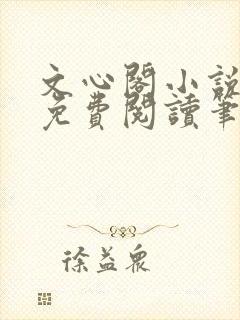 文心閣小說
免費閱讀筆
徐益眾